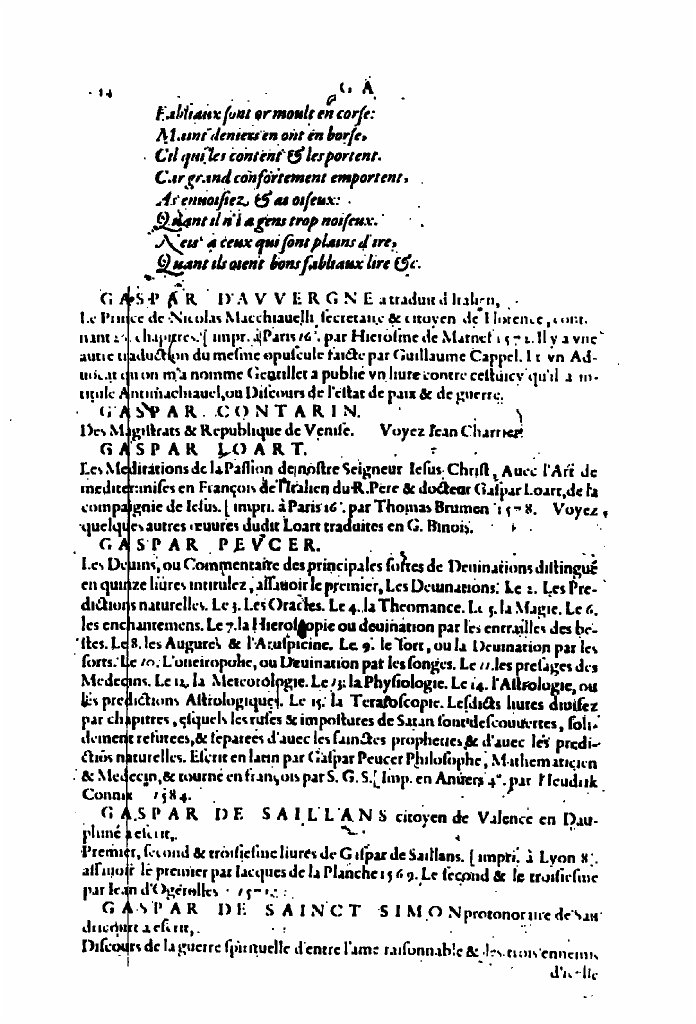 G A
Fabliaux sont or moult en corse:
Maint deniers en ont en borse,
Cil qui les content & les portent.
Car grand confortement emportent,
As ennoisiez, & as oiseux:
Quant il n'i a gens trop noiseux.
Neis' a ceux qui sont plains d'ire,
Quant ils oient bons fabliaux lire &c.
GASPAR D'AVVERGNE a traduit d'Italien,
Le Prince de Nicolas Macchiauelli secretaire & citoyen de Florence, cont.
nant chapitres. [impr. à Paris 16°. par Hierosme de Marnef 1572. Il y a vne
autre traduction du mesme opuscule faicte par Guillaume Cappel. Et vn Ad-
uocat qu'on m'a nomme Gentillet a publié vn liure contre cestuicy qu'il a in-
titulé Antimachiauel, ou Discours de l'estat de paix & de guerre.
GASPAR CONTARIN.
Des Magistrats & Republique de Venise. Voyez Iean Charrier.
GASPAR LOART.
Les Meditations de la Passion de nostre Seigneur Iesus Christ, Auec l'Art de
mediter: mises en François de l'Italien du R. Pere & docteur Gaspar Loart, de la
compaignie de Iesus. [impri. à Paris 16°. par Thomas Brumen 1578. Voyez
quelques autres œuures dudit Loart traduites en G. Binois.
GASPAR PEVCER.
Les Deuins, ou Commentaire des principales sortes de Deuinations distingué
en quinze liures intitulez, assauoir le premier, Les Deuinations. Le 2. Les Pre-
dictions naturelles. Le 3. Les Oracles. Le 4. la Theomance. Le 5. la Magie. Le 6.
les enchantemens. Le 7. la Hieroscopie ou deuination par les entrailles des be-
stes. Le 8. les Augures & l'Aruspicine. Le 9. le sort, ou la Deuination par les
sorts. Le 10. L'oneiropolie, ou Deuination par les songes. Le 11. les presages des
Medecins. Le 12. la Meteorologie. Le 13. la Physiologie. Le 14. l'Astrologie, ou
les predictions Astrologiques. Le 15. la Terastoscopie. Lesdicts liures diuisez
par chapitres, esquels les ruses & impostures de Satan sont descouuertes, soli-
dement refutees, & separees d'auec les sainctes propheties, & d'auec les predi-
ctiõs naturelles. Escrit en latin par Gaspar Peucer Philosophe, Mathematicien
& Medecin, & tourné en françois par S. G. S. [Imp. en Anuers 4°. par Heudrik
Connix 1584.
GASPAR DE SAILLANS citoyen de Valence en Dau-
phiné a escrit,
Premier, second & troisiesme liures de Gaspar de Saillans. [impri. à Lyon 8°.
assauoir le premier par Iacques de la Planche 1569. Le second & le troisiesme
par Iean d'Ogerolles
GASPAR DE SAINCT SIMON protonotaire de San
a escrit,
Discours de la guerre spirituelle d'entre l'ame raisonnable & les trois ennemis
d'icelle